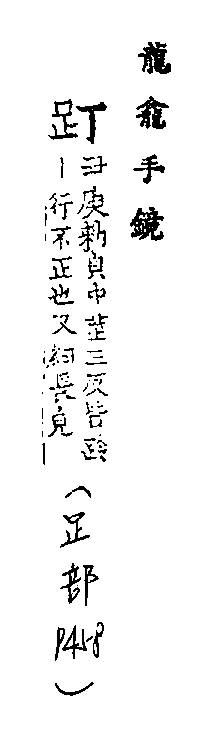 龍龕手鏡
䟓
丑庚勑貞中茎三反皆跉
丨行不正也又細長皃
（足部P458）